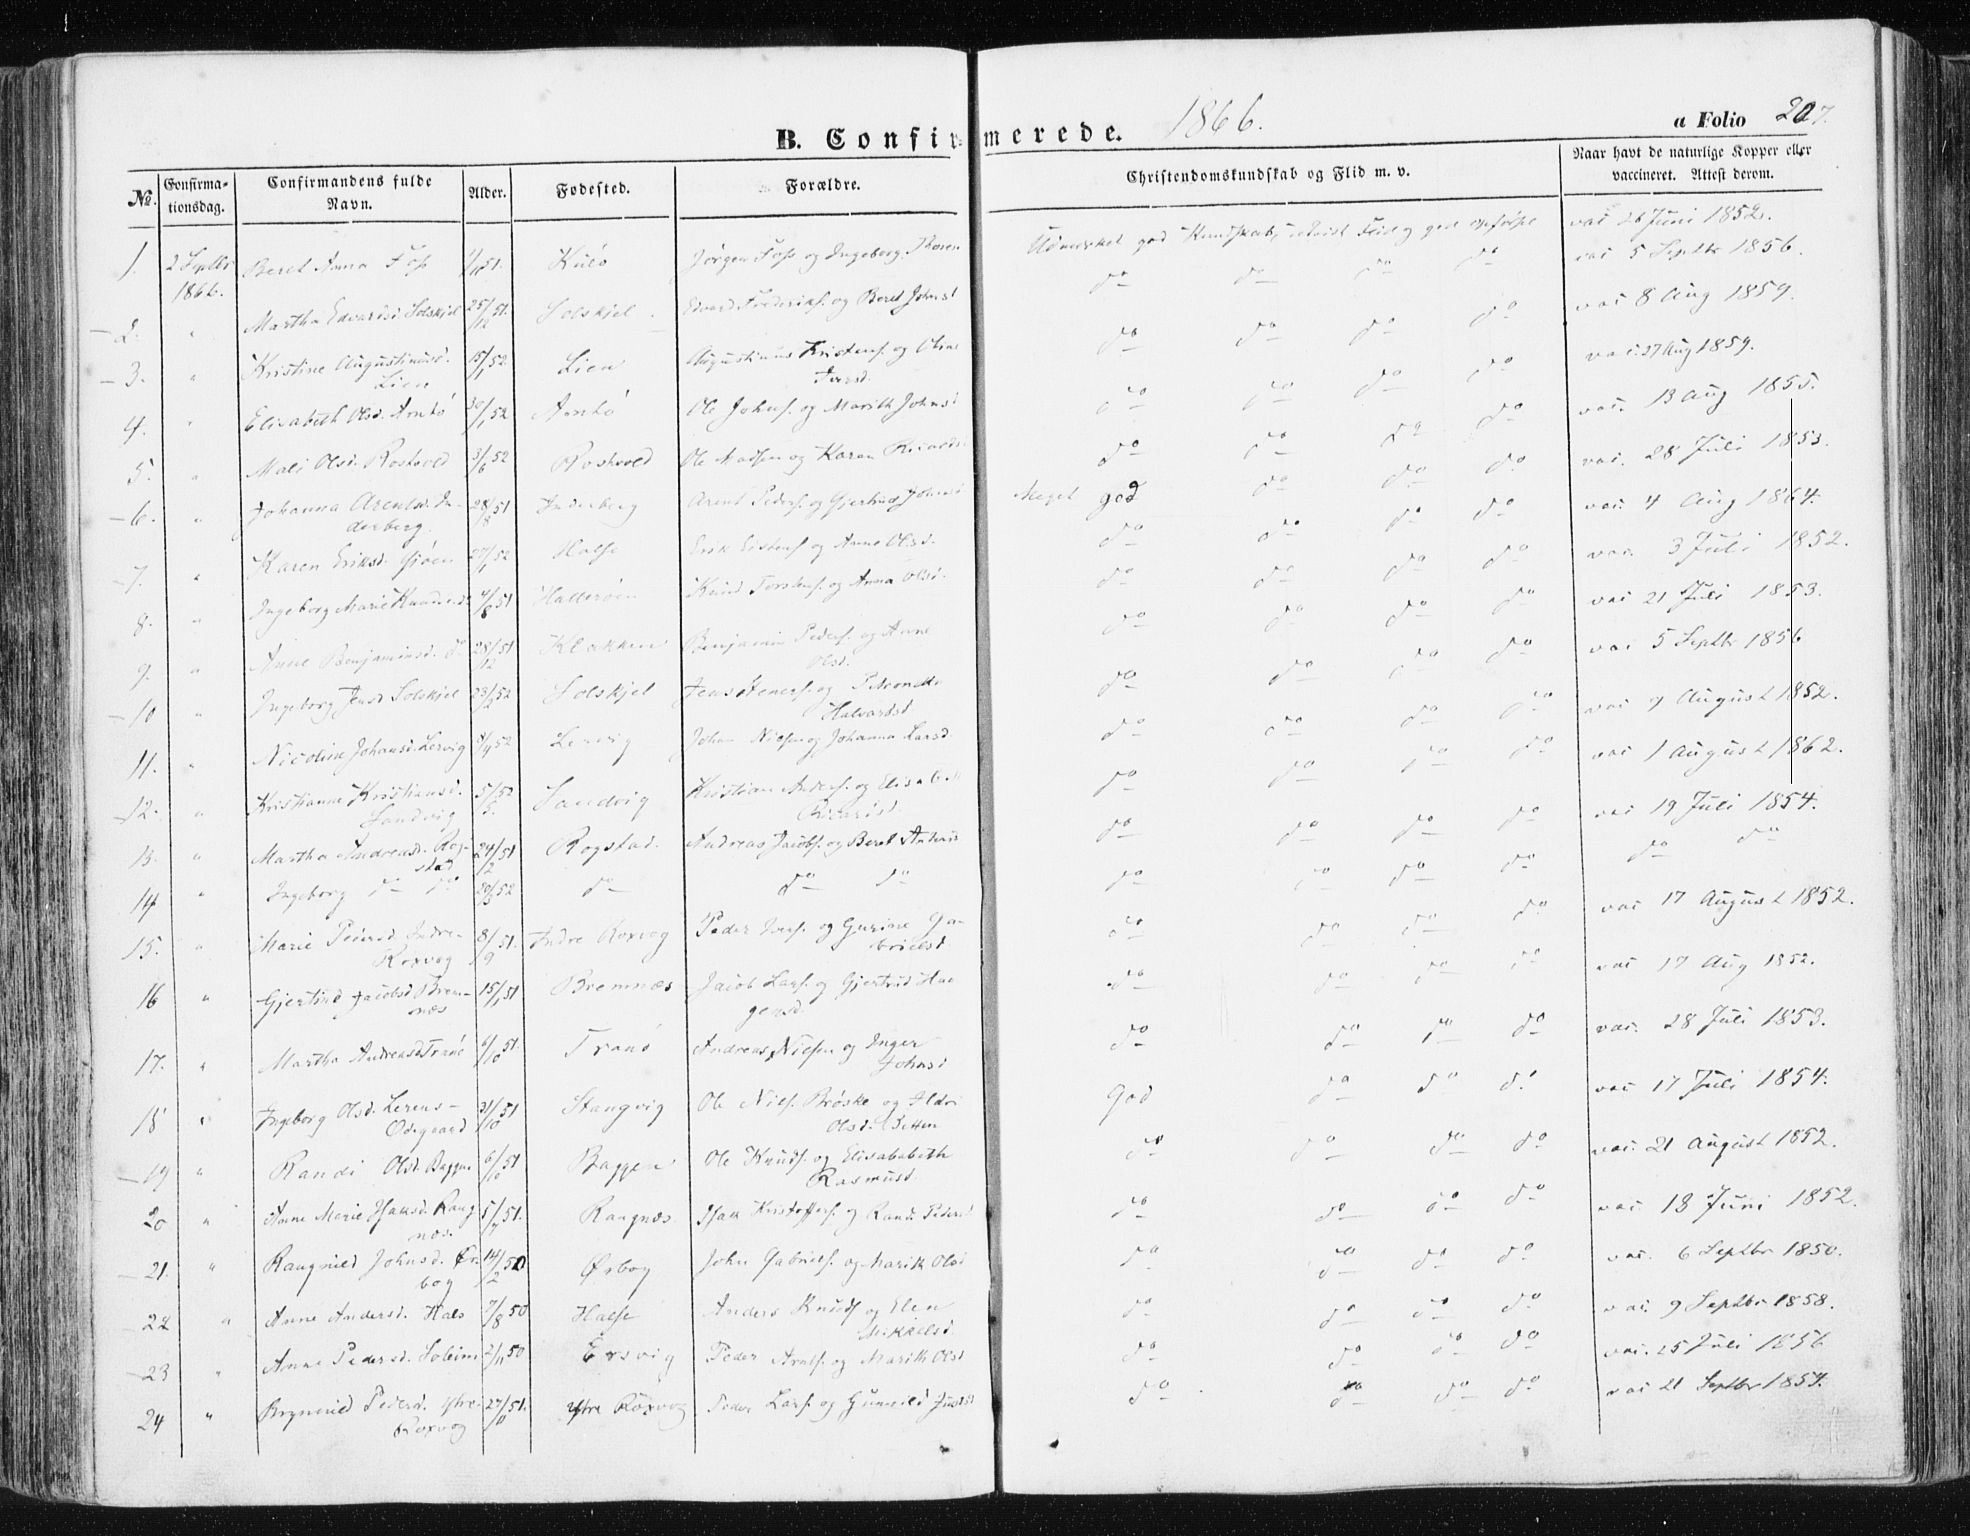 B. Confirmerede. 1866.
a Folio 207.
No. Confirmationsdag. Confirmandens fulde Navn. Alder. Fødested. Forældre. Christendomskundskab og Flid m. v. Naar havt de naturlige Kopper eller vaccineret. Attest derom.
1. 2 Septbr 1866. Beret Anna Foss 51. Kulø Jørgen Foss og Ingeborg Udmærket god Kundskab, Flid og god Opførsel vac 26 Juni 1852.
2. " Martha Edvardsd. Solskjel 25/12 51. Solskjel Edvard Frederiks. og Beret Johnsd do do do do vac 5 Septbr 1856.
3. " Kristine Augustinusd. Lien 15/1 52 Lien Augustinus Kristens. og do do do do vac 8 Aug 1859.
4. " Elisabeth Olsd. Arntø 30/1 52 Arntø Ole Johns. og Marith Johnsd do do do do vac. 27 Aug 1859.
5. " Mali Olsd. Roskvold 3/6 52 Roskvold Ole Madsen og Karen do do do do vac. 13 Aug 1855.
6. " Johanna Arentsd. Inderberg. 28/8 51 Inderberg Arent Peders. og Gjertrud Johnsd Meget god do do do vac. 28 Juli 1853.
7. " Karen Eriksd. 27/1 52 Halse Erik og Anne Olsd. do do do do vac. 4 Aug 1864.
8. " Ingeborg Marie Knudsd. 4/8 51 Hallerøen Knud Torstens. og Anna Olsd. do do do do vac. 3 Juli 1852.
9. " Anne Benjaminsd. do 28/12 51 Klakken Benjamin Peders. og Anne Olsd. do do do do vac 21 Juli 1853.
10 " Ingeborg Jensd Solskjel 23/3 52 Solskjel Jens og Petronelle Halvardsd do do do do vac 5 Septbr 1856
11. " Nicoline Johansd. Lervig 52 Lervig Johan Nielsen og Johanna Larsd. do do do do vac 9 August 1852.
12. " Kristianne Kristiansd. Sandvig 5/5 52 Sandvig Kristian Anders. og Elisabeth do do do do vac 1 August 1862.
13. " Martha Andreasd. Rogstad 24/2 51 Rogstad. Andreas Jacobs. og Beret do do do do vac 19 Juli 1854.
14 " Ingeborg do do 20/3 52 do do do do do do do do do
15. " Marie Pedersd. Indre Roxvog 8/9 51. Indre Roxvog Peder Ivers. og Gurine Gabrielsd do do do do vac 17 August 1852.
16 " Gjertrud Jacobsd Bremnæs 15/1 51 Bremnæs Jacob Lars. og Gjertrud Haagensd. do do do do vac 17 Aug 1852.
17. " Martha Andreasd Tranø 6/10 51. Tranø Andreas Nielsen og Inger Johnsd do do do do vac. 28 Juli 1853.
18 " Ingeborg Olsd. Lerens-Ødegaard 31/10 51 Stangvig Ole Niels. Brøske og Olsd. God do do do vac 17 Juli 1854.
19 " Randi Olsd. Baggen 6/10 51 Baggen Ole Knuds. og Elisababeth Rasmusd. do do do do vac. 21 August 1852.
20 " Anne Marie Isaksd. Rangnæs. 5/7 51. Rangnæs. Isak Kristoffers. og Randi Pedersd do do do do vac. 18 Juni 1852.
21. " Rangnild Johnsd. Ørbog 14/2 50 Ørbog John Gabriels. og Marith Olsd do do do do vac. 6 Septbr 1850.
22 " Anne Andersd. Hals 7/8 50 Halse Anders Knuds og Elen Mikkelsd. do do do do vac. 9 Septbr 1858.
23 " Anne Pedersd. Soleim 2/11 50 Ersvig Peder Arnts. og Marith Olsd do do do do vac. 25 Juli 1856
24 " Brynnild Pedersd. Ytre Roxvog 27/11 51. Ytre Roxvog Peder Lars. og Gunnild do do do do vac 21 Septbr 1854.